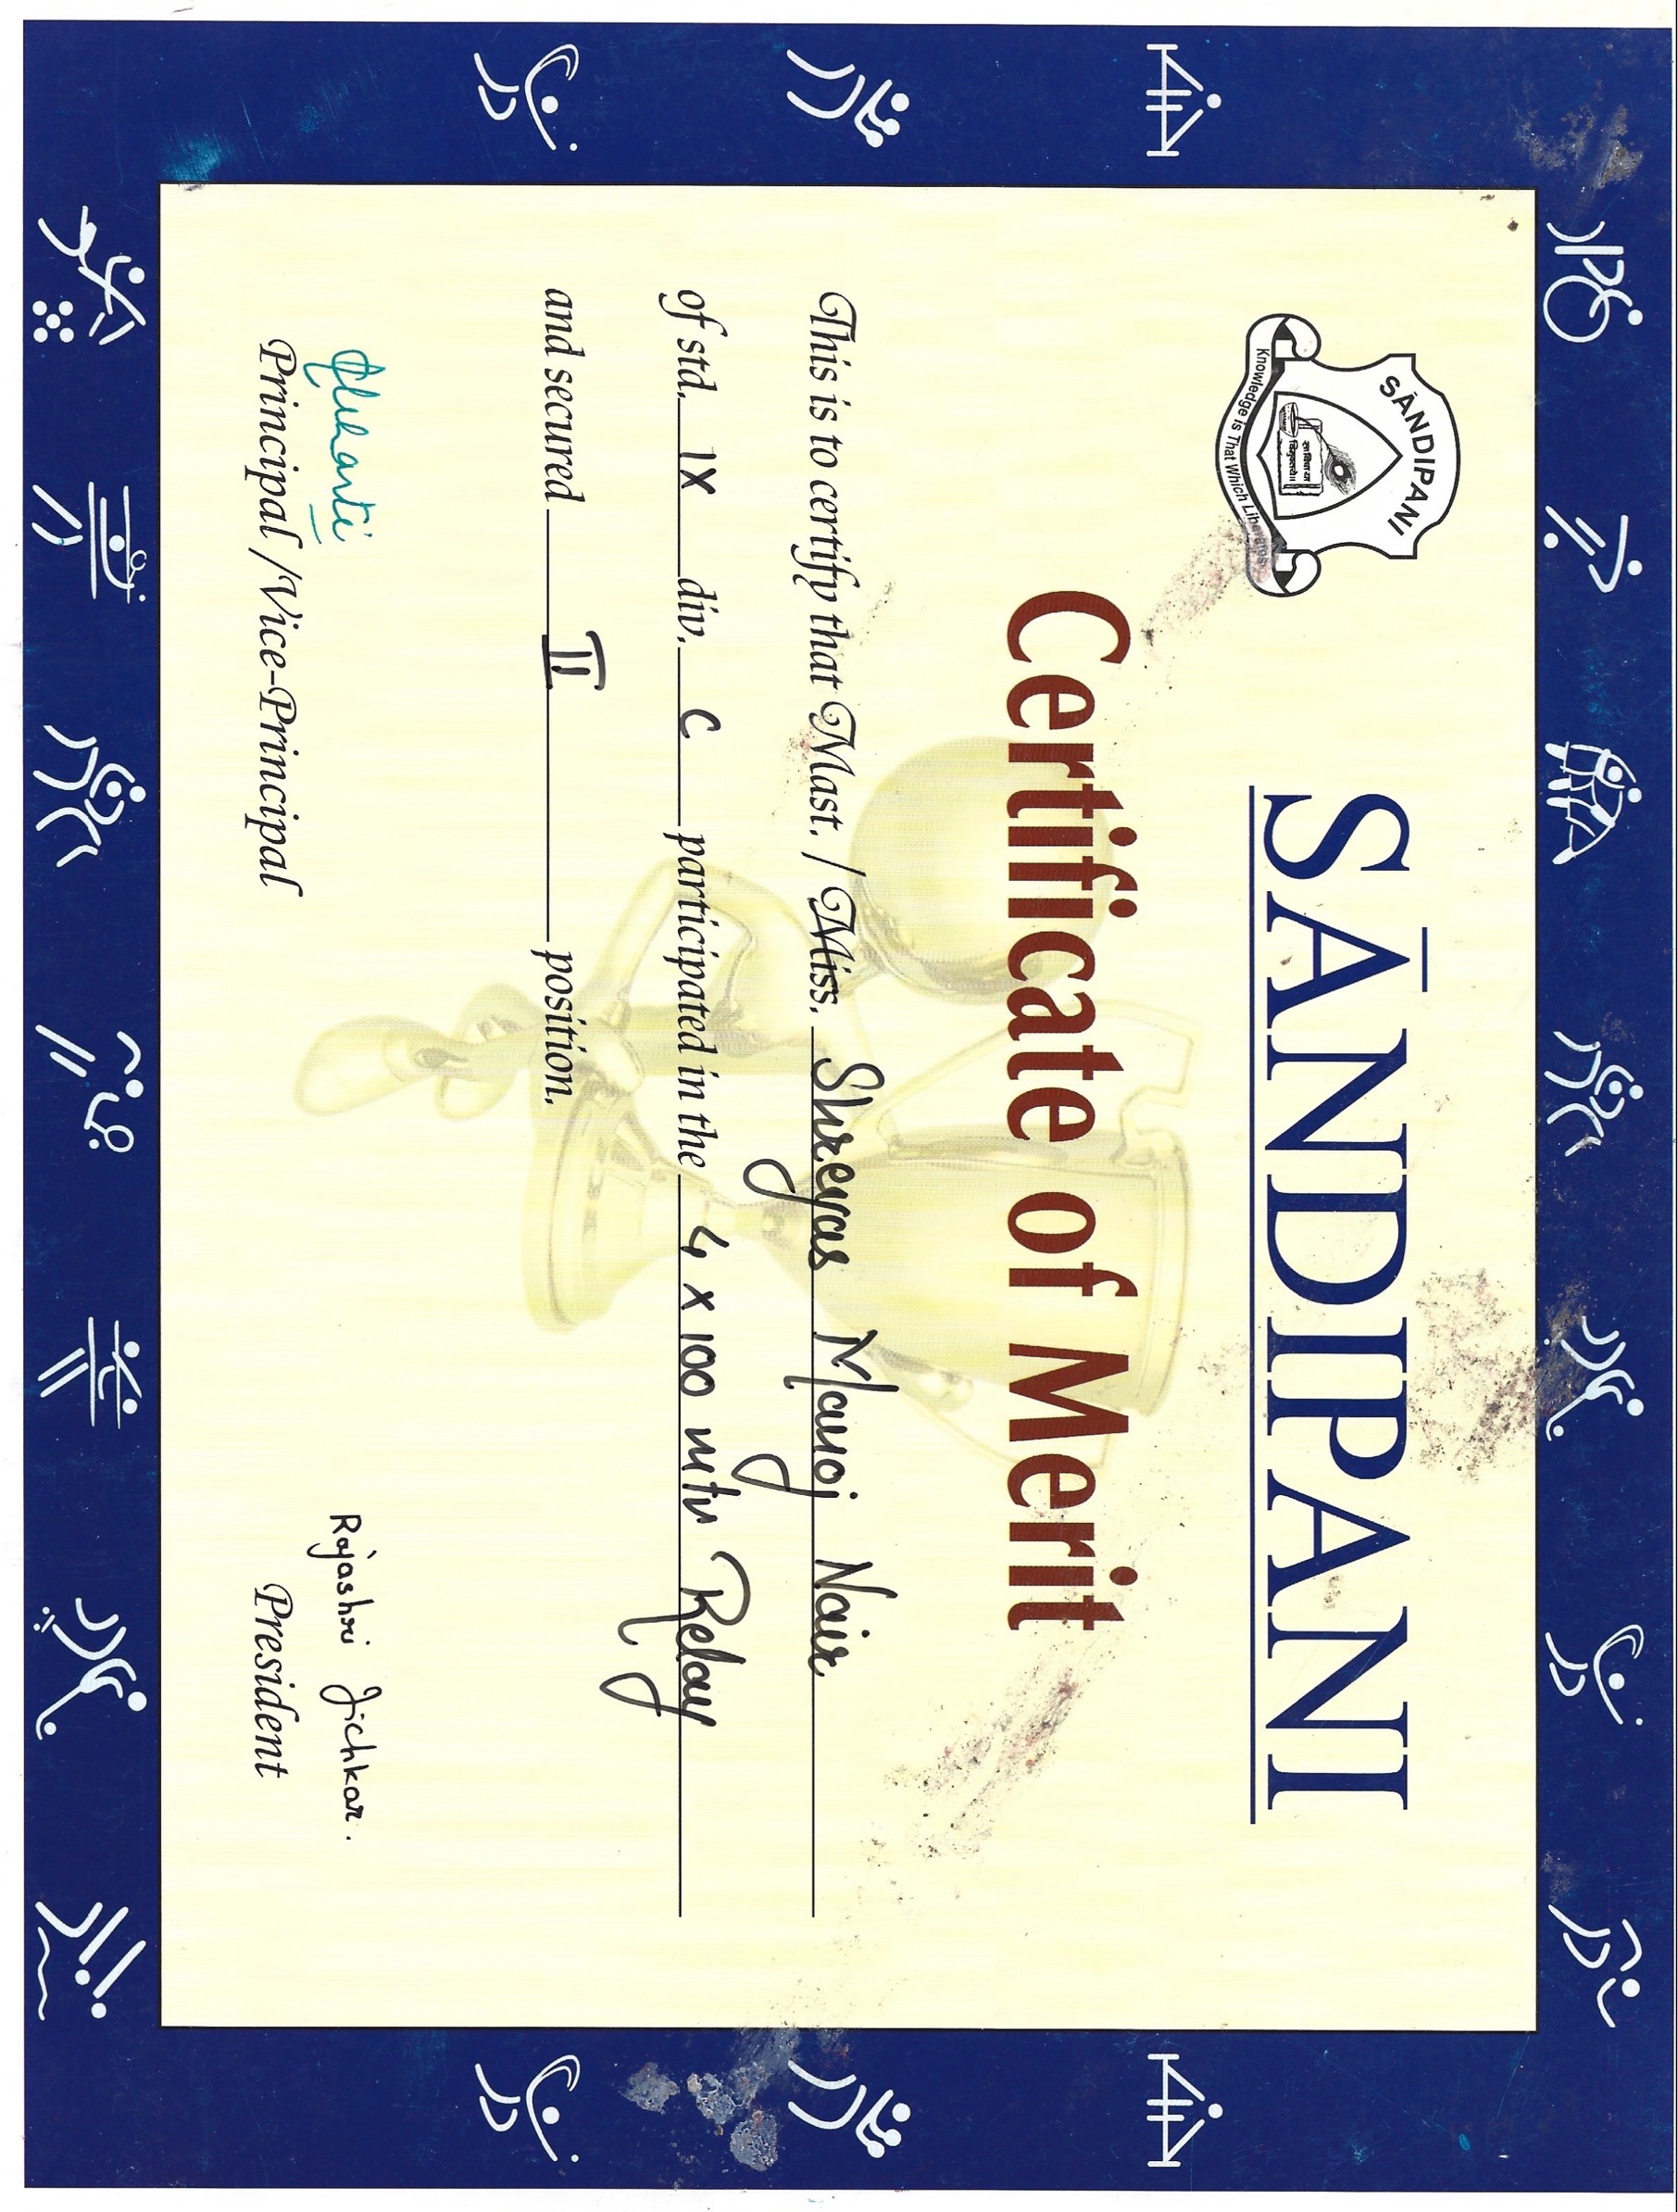 SĀNDIPANI
सा विद्या या
विमुक्तये॥
Knowledge is That Which Liberates
SĀNDIPANI
Certificate of Merit
This is to certify that Mast. / Miss. Shreyas Manoj Nair
of std. IX div. C participated in the 4 x 100 mtr Relay
and secured II position.
Rajashri Jichkar.
Principal /Vice-Principal
President